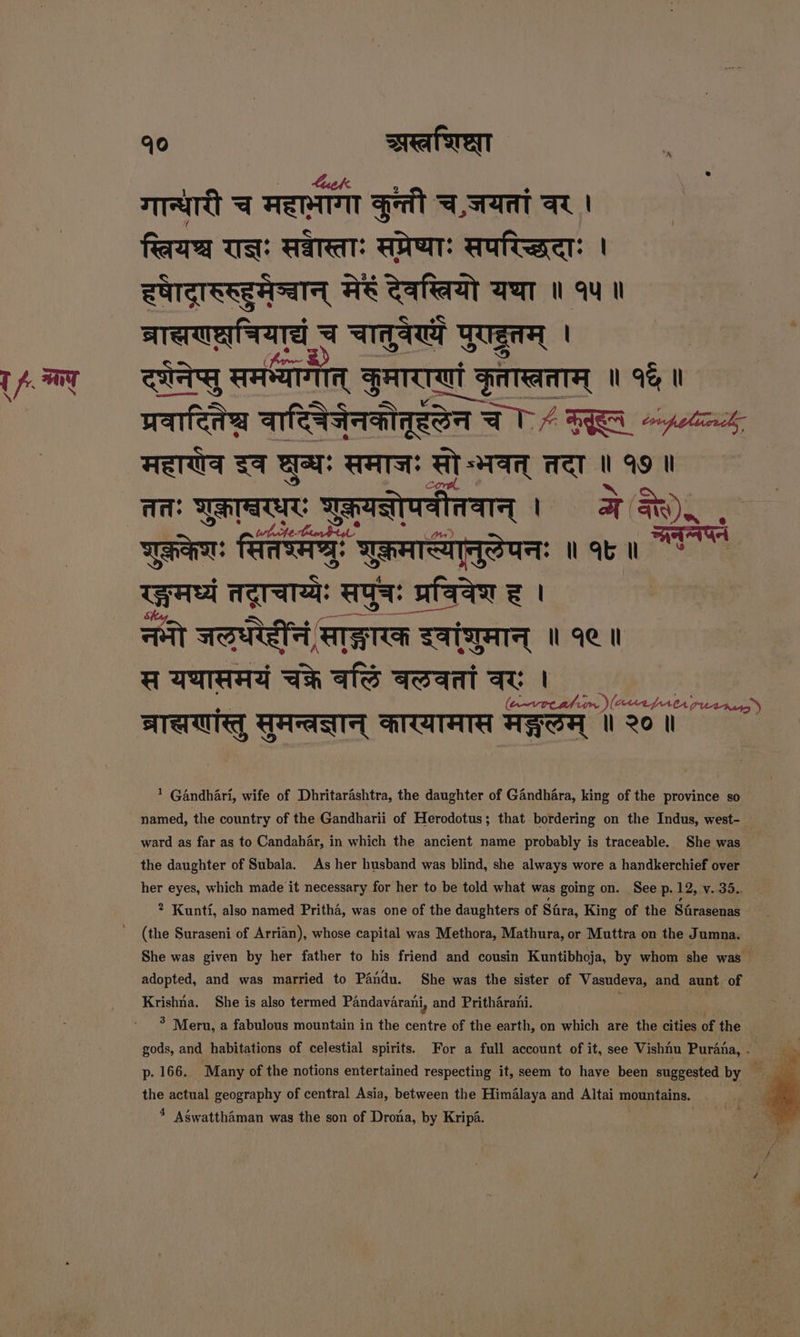 १० अस्त्रशिक्षा
luck
गान्धारी च महाभागा कुन्ती च जयतां वर ।
स्त्रियश्च राज्ञः सर्व्वास्ताः सप्रेष्याः सपरिच्छदाः ।
हर्षादारुरुहुर्मञ्चान् मेरुं देवस्त्रियो यथा ॥ १५ ॥
ब्राह्मणक्षत्रियाद्यं च चातुर्वर्ण्यं पुराद्द्रुतम् ।
दर्शनेप्सु समभ्यागात् कुमाराणां कृतास्त्रताम् ॥ १६ ॥
प्रवादितैश्च वादित्रैर्जनकौतूहलेन च । कुतूहल
महार्णव इव क्षुब्धः समाजः सो ऽभवत् तदा ॥ १७ ॥
ततः शुक्लाम्बरधरः शुक्लयज्ञोपवीतवान् ।
शुक्लकेशः सितश्मश्रुः शुक्लमाल्यानुलेपनः ॥ १८ ॥ अनुलेपनं
रङ्गमध्यं तदाचार्य्यः सपुत्रः प्रविवेश ह ।
sky
नभो जलधरैर्हीनं साङ्गारक इवांशुमान् ॥ १९ ॥
स यथासमयं चक्रे बलिं बलवतां वरः ।
ब्राह्मणांस्तु सुमन्त्रज्ञान् कारयामास मङ्गलम् ॥ २० ॥
¹ Gándhárí, wife of Dhritaráshtra, the daughter of Gándhára, king of the province so
named, the country of the Gandharii of Herodotus; that bordering on the Indus, west-
ward as far as to Candahár, in which the ancient name probably is traceable. She was
the daughter of Subala. As her husband was blind, she always wore a handkerchief over
her eyes, which made it necessary for her to be told what was going on. See p. 12, v. 35.
² Kuntí, also named Pritha, was one of the daughters of Súra, King of the Súrasenas
(the Suraseni of Arrian), whose capital was Methora, Mathura, or Muttra on the Jumna.
She was given by her father to his friend and cousin Kuntibhoja, by whom she was
adopted, and was married to Pándu. She was the sister of Vasudeva, and aunt of
Krishna. She is also termed Pándavárani, and Prithárani.
³ Meru, a fabulous mountain in the centre of the earth, on which are the cities of the
gods, and habitations of celestial spirits. For a full account of it, see Vishńu Puráńa,
p. 166. Many of the notions entertained respecting it, seem to have been suggested by
the actual geography of central Asia, between the Himálaya and Altai mountains.
⁴ Aśwattháman was the son of Drońa, by Kripá.